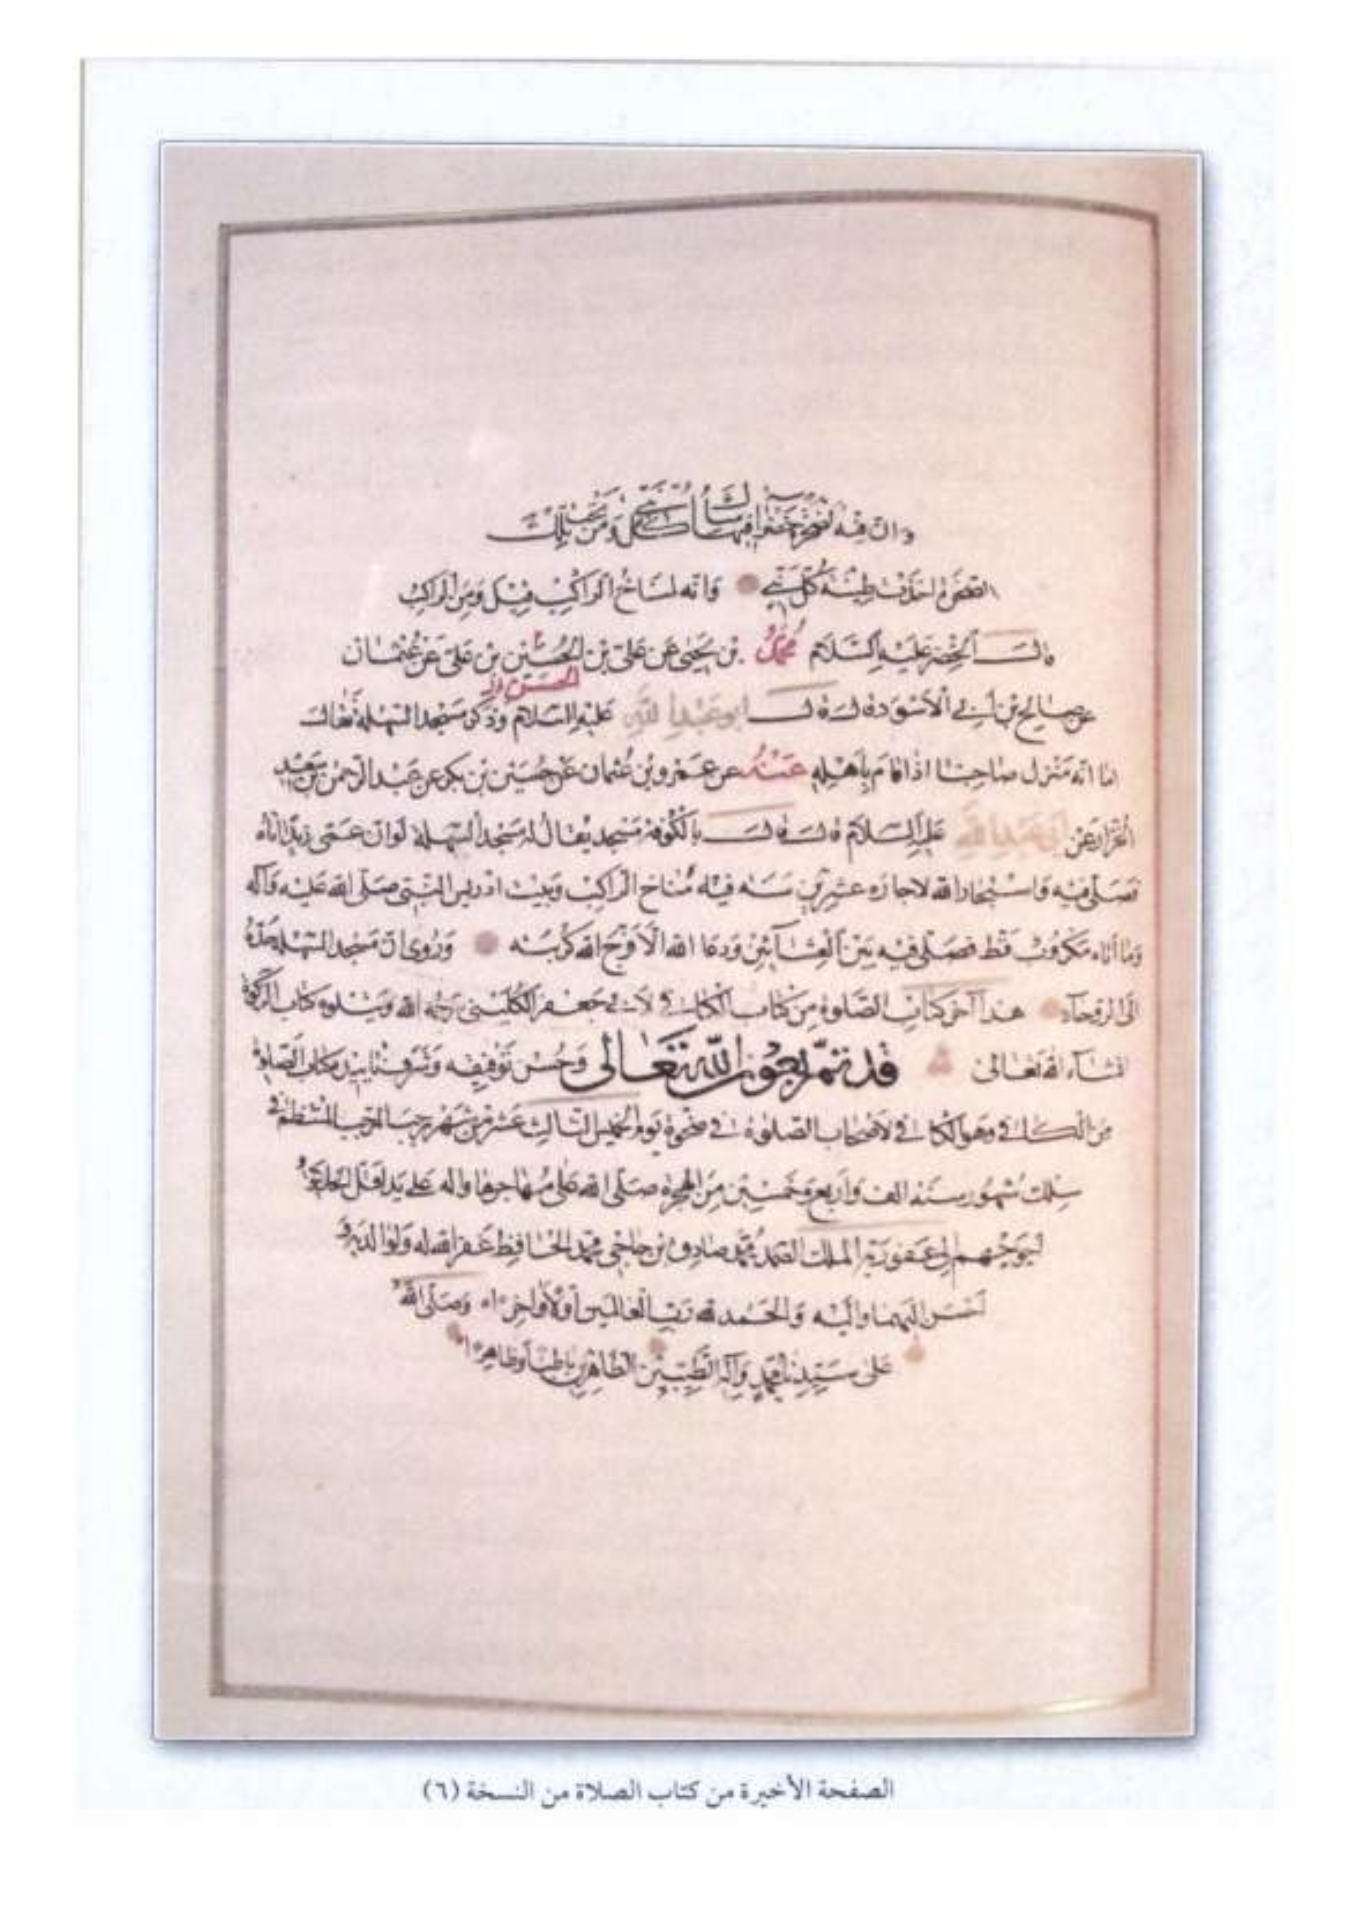 وان فيه لصخرة خضراء فيها مثال كل نبي ومن تحت تلك
الصخرة اخذت طينة كل نبي وانه لمناخ الراكب قيل ومن الراكب
قال الخضر عليه السلام محمد بن يحيى عن على بن الحسين بن على عن عثمان
الحسن
عن صالح بن أبي الاسود قال قال ابو عبد الله عليه السلام وذكر مسجد السهلة فقال
اما انه منزل صاحبنا اذا قام بأهله عنه عن عمرو بن عثمان عن حسين بن بكر عن عبد الرحمن بن سعيد
الخزاز عن ابى عبد الله عليه السلام قال قال بالكوفة مسجد يقال له مسجد السهلة لو ان عمى زيدا اتاه
فصلى فيه واستجار الله لاجاره عشرين سنه فيه مناخ الراكب وبيت ادريس النبى صلى الله عليه وآله
وما أتاه مكروب قط فصلى فيه بين العشائين ودعا الله الا فرج الله كربته وروى ان مسجد السهلة حده
الى الروحآء هذا آخر كتاب الصلوة من كتاب الكافي لابي جعفر الكليني رحمه الله ويتلوه كتاب الزكوة
انشاء الله تعالى قد تم بعون الله تعالى وحسن توفيقه كتاب الصلوة
من الكافي وهو الكافي لاصحاب الصلوة في ضحوة يوم الخميس الثالث عشر من شهر رجب المرجب المنتظم في
سلك شهور سنة الف واربع وخمسين من الهجرة صلى الله على مهاجرها وآله على يد اقل الخليقة
احوجهم الى عفو ربه الملك الصمد محمد صادق بن حاجى محمد الحافظ غفر الله له ولوالديه و
احسن اليهما واليه والحمد لله رب العالمين أولا واخرا وصلى الله
على سيدنا محمد وآله الطيبين الطاهرين باطنا وظاهرا
الصفحة الأخيرة من كتاب الصلاة من النسخة (٦)